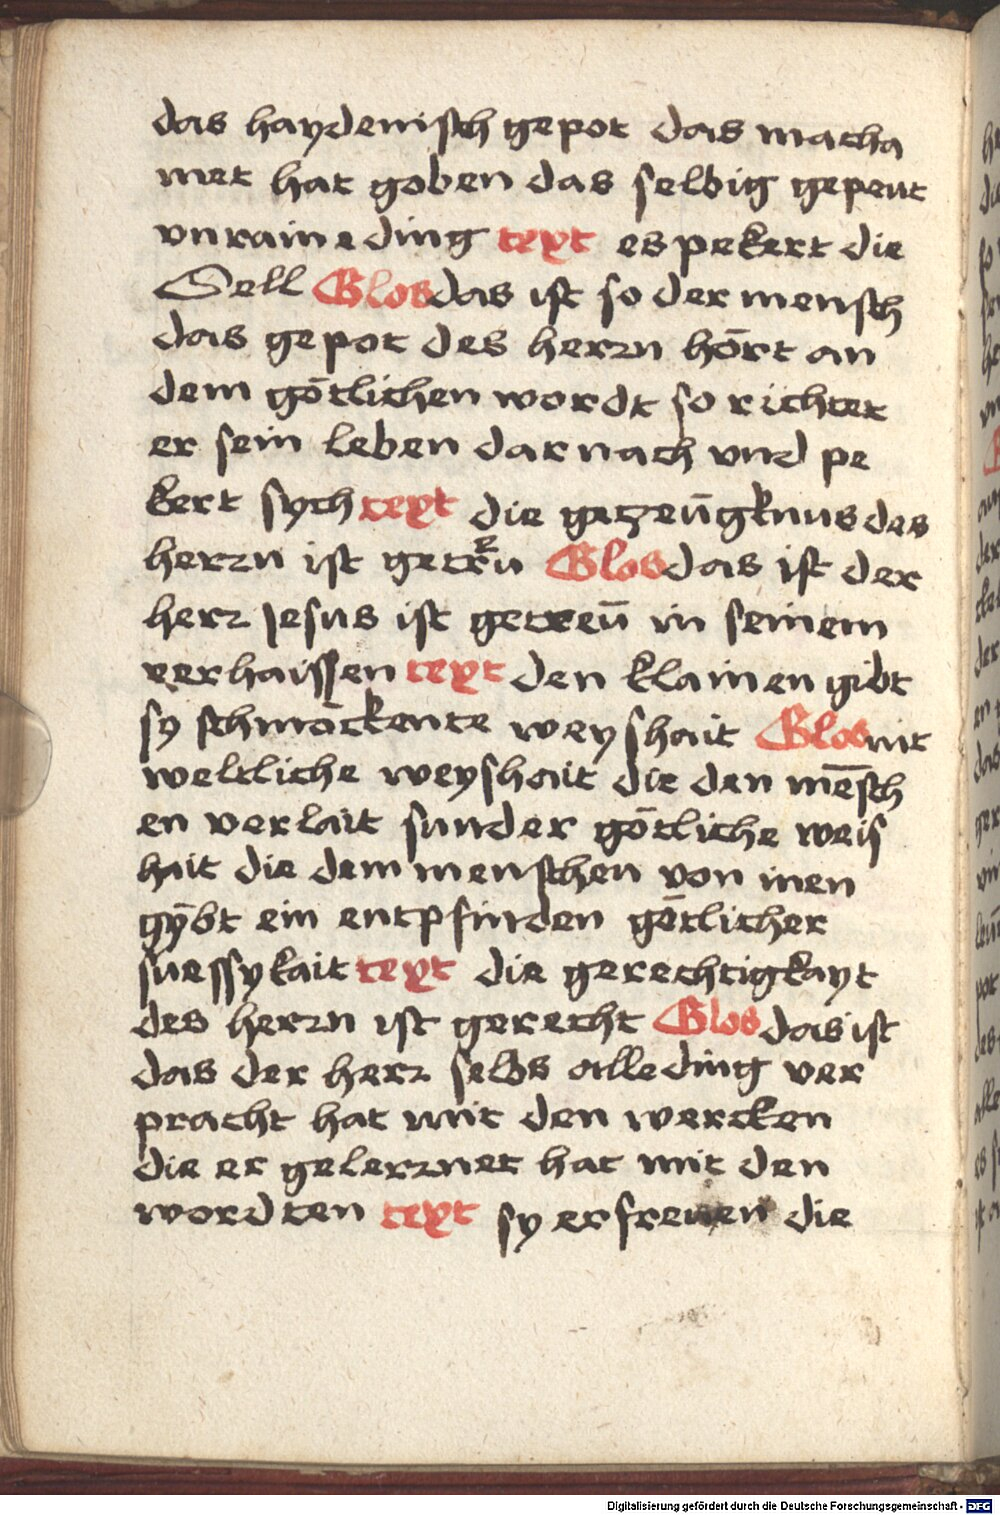 das haydenisch gepot das macha
met hat goben das selbig gepeut
vnraine ding text es pekert die
Sell Glos das ist so der mensch
das gepot des herrn hört an
dem götlichen wordt so richtet
er sein leben dar nach vnd pe
kert sych text die gezeũgknus des
herrn ist getreu Glos das ist der
herr Jesus ist getreũ in seinem
verhaissen text den klainen gibt
sy schmöckente weyshait Glos nit
weltliche weyshait die den mẽsch
en verlait sunder götliche weis
hait die dem menschen von inen
gÿbt ein entpfinden götlicher
suessykait text die gerechtigkayt
des herrn ist gerecht Glos das ist
das der herr selbs alle ding ver
pracht hat mit den wercken
die er gelerznet hat mit den
wordten text sy erfreuen die
Digitalisierung gefördert durch die Deutsche Forschungsgemeinschaft - DFG